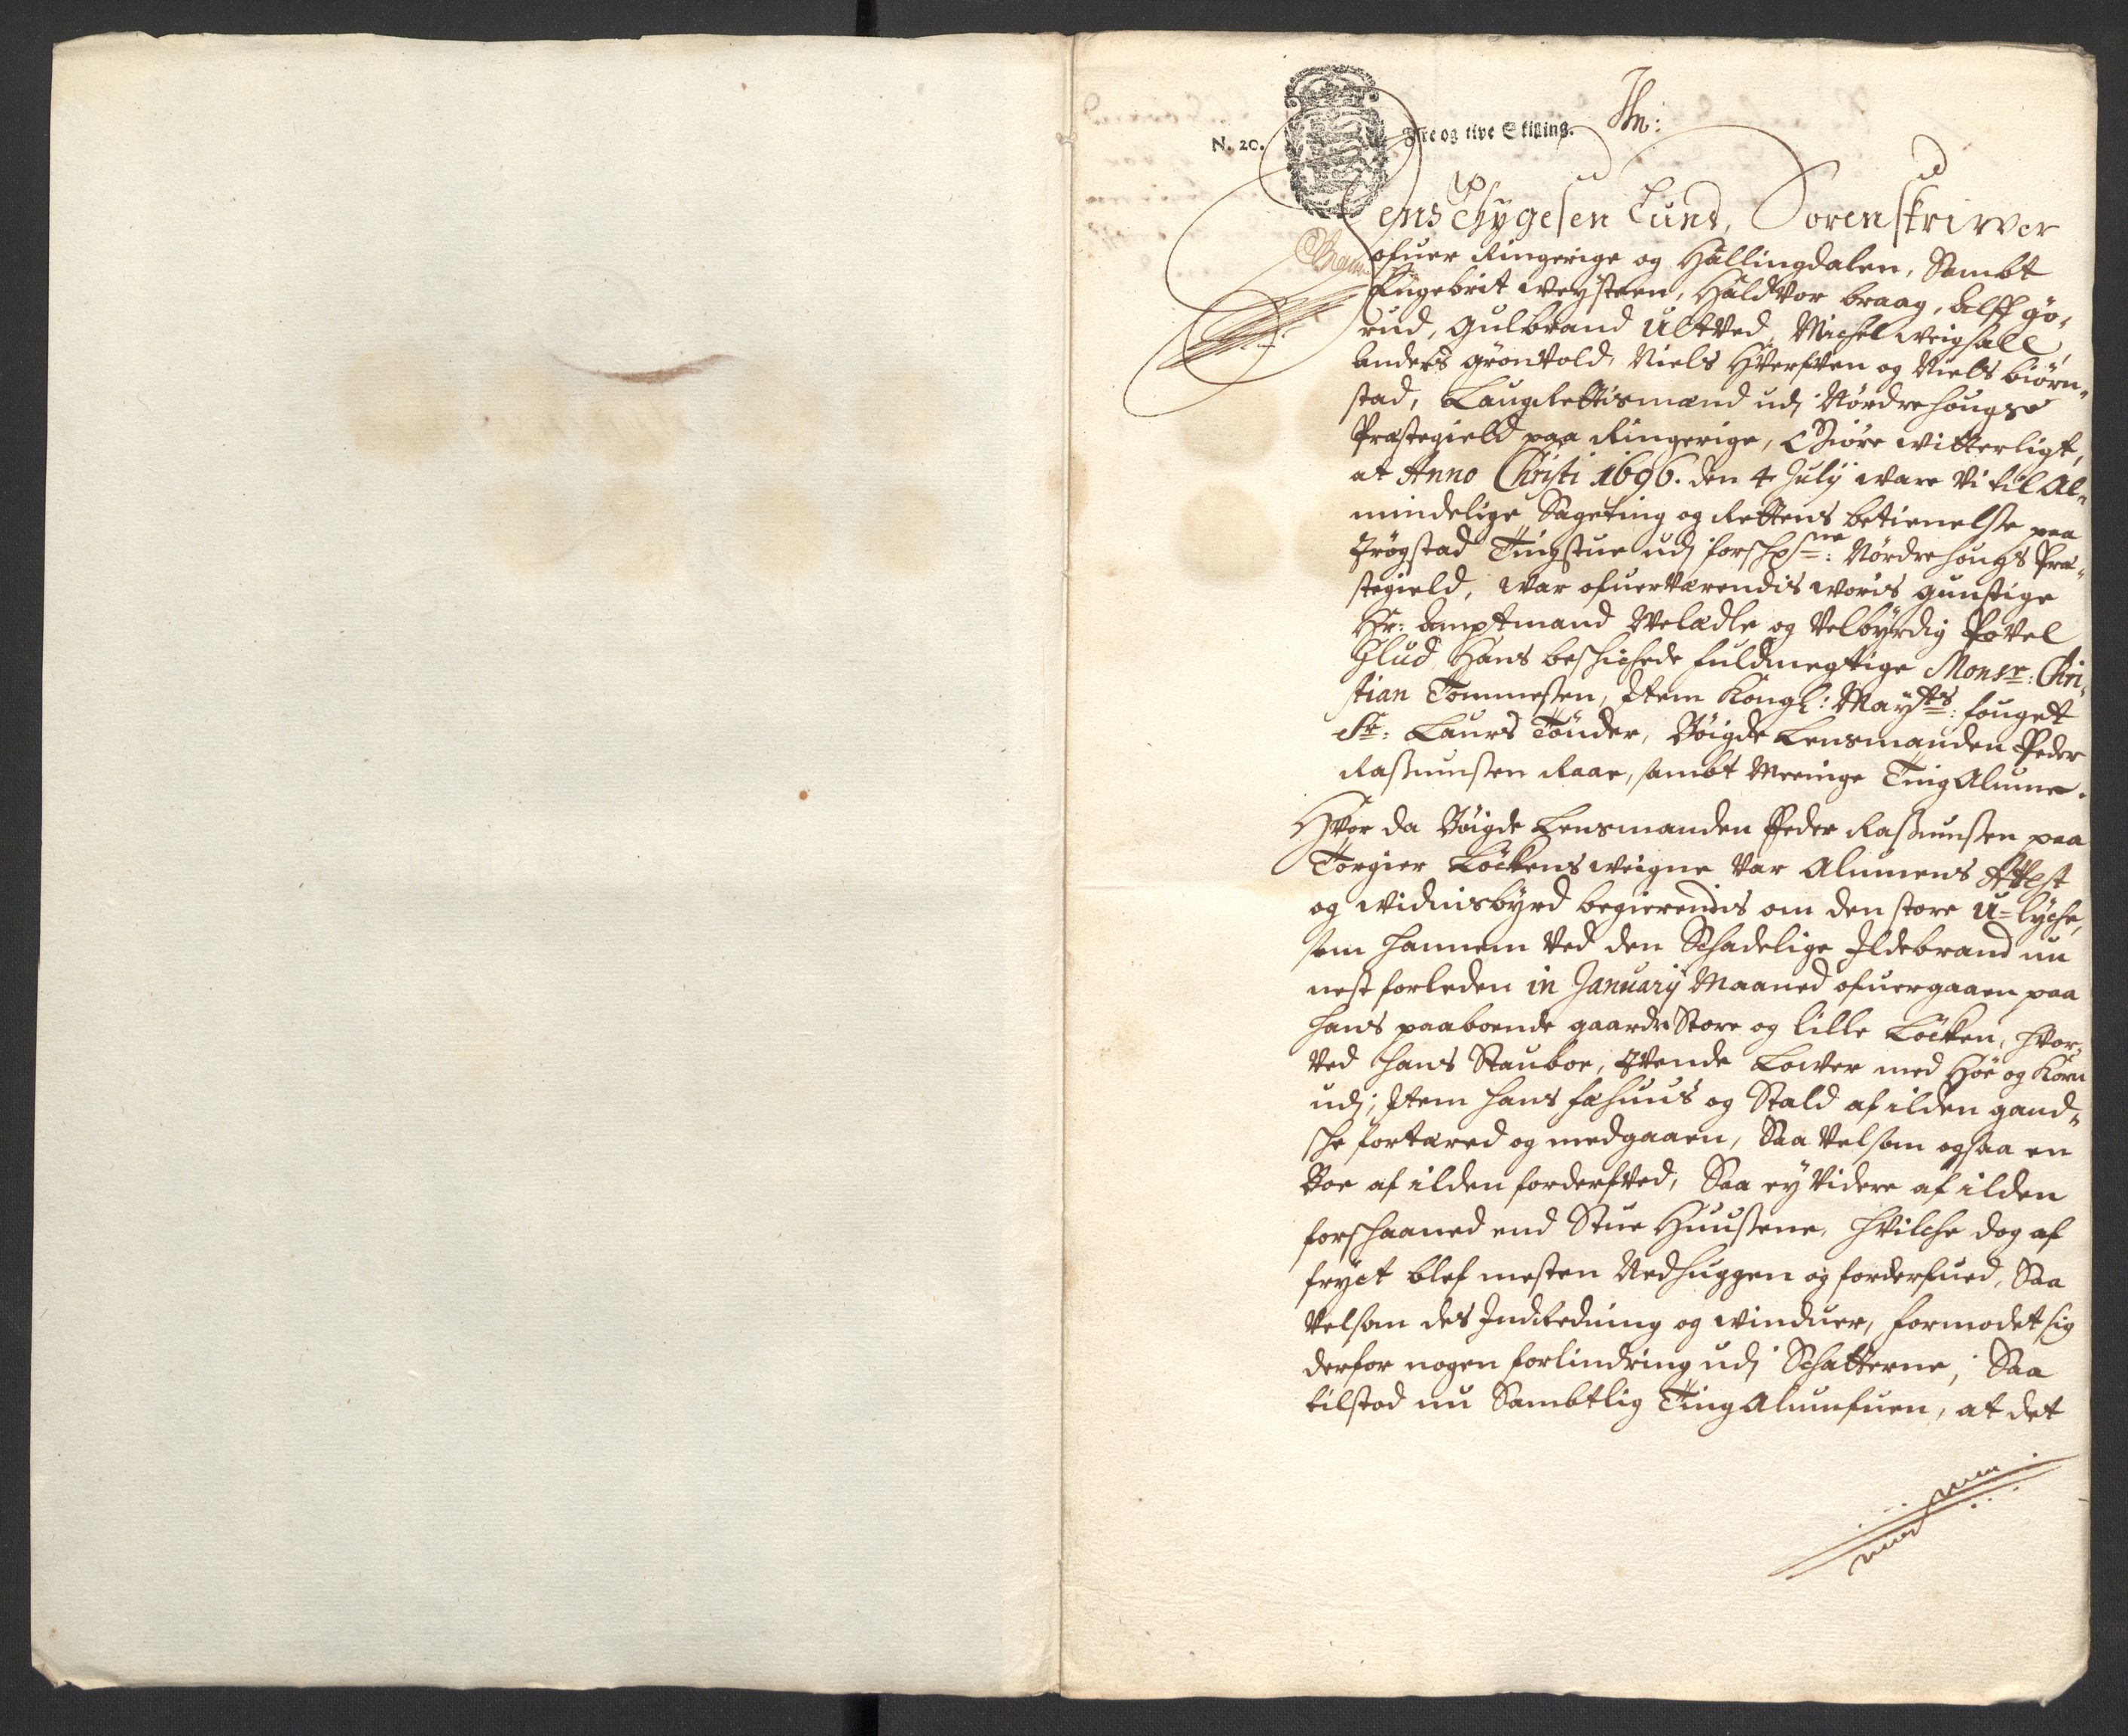 N. 20. Fire og tive Skilling.
Jens Thygesen Lund, Sorenskriwer
ofuer Ringerige og Hallingdalen, Sambt
Engebrit Weysteen, Haldvor braag, Alff gö„
rud, Gulbrand Ultved, Michel Weigsall,
Anders Grönvold, Niels Hverfven og Niels biörn„
stad, Laugrettismænd udj Nördrehougs
Præstegield paa Ringerige, Giöre witterligt,
at Anno Christi 1696. den 4 July ware Vi til Al„
mindelige Sageting og Rettens betienelse paa
Grögstad Tingstue udj forschr:ne Nördrehougs Præ„
stegield, war ofuerværendis woris gunstige
Hr: Amptmand Welædle og Velbyrdig Povel
Glud Hans beschichede fuldmegtige Monsr: Chri„
stian Tommesen, Item Kongl: Mayts: fouget
Sr: Laurs Tönder, Böigde Lensmanden Peder
Rasmussen Raae, sambt Meenige Ting Alumue.
Hvor da Böigde Lensmanden Peder Rasmussen paa
Torgier Löckens weigne var Alumuens Attest
og widnisbyrd begierendis om den store U=lyche,
som hannem ved den Schadelige Ildebrand nu
nest forleden in January Maaned ofuergaaen paa
hans paaboende gaarde Store og lille Löcken, hvor„
ved hans Stauboe, Tvende Lower med Höe og Korn
udj; Item hans fæhuus og Stald af ilden gand„
sche fortæred og medgaaen, Saa velsom ogsaa en
Boe af ilden forderfved, Saa ey videre af ilden
forschaaned end Stue Huussene, hvilche dog af
fryct blef mesten Nedhuggen og forderfued, Saa
velsom des Indredning og winduer, formodet sig
derfor nogen forlindring udj Schatterne; Saa
tilstod nu Sambtlig Ting Alumuen, at det